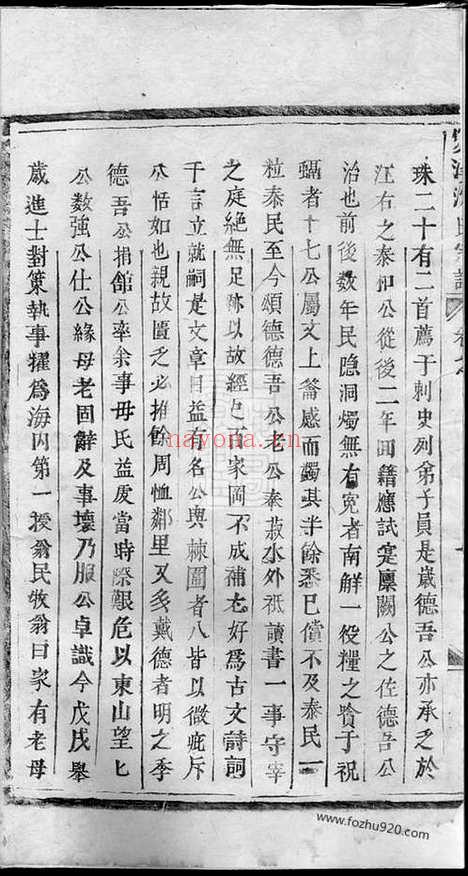 珠二十有二首薦于刺史列弟子員是歲德吾公亦承乏於
江右之泰和公從後二年回籍應試寔廩闕公之佐德吾公
治也前後数年民隐洞燭無有寃者南觧一役糧之貲于祝
蝠者十七公屬文上龠感而蠲其半餘悉已償不及泰民一
粒泰民至今頌德德吾公老公奉菽水外祗讀書一事守宰
之庭絶無足跡以故經乜百家罔不成補尤好爲古文詩詞
千言立就嗣是文章日益有名公與棘圍者八皆以微疵斥
公恬如也親故匱乏必推餘周恤鄰里又多戴德者明之季
德吾公捐館公率余事毋氏益虔當時際艱危以東山望乜
公数強公仕公緣母老固辭及事壞乃服公卓識今戊戌舉
歲進士對策執事擢爲海内第一授翁民牧翁曰家有老母
氏宗譜
nayona.cn
www.fozhu920.com